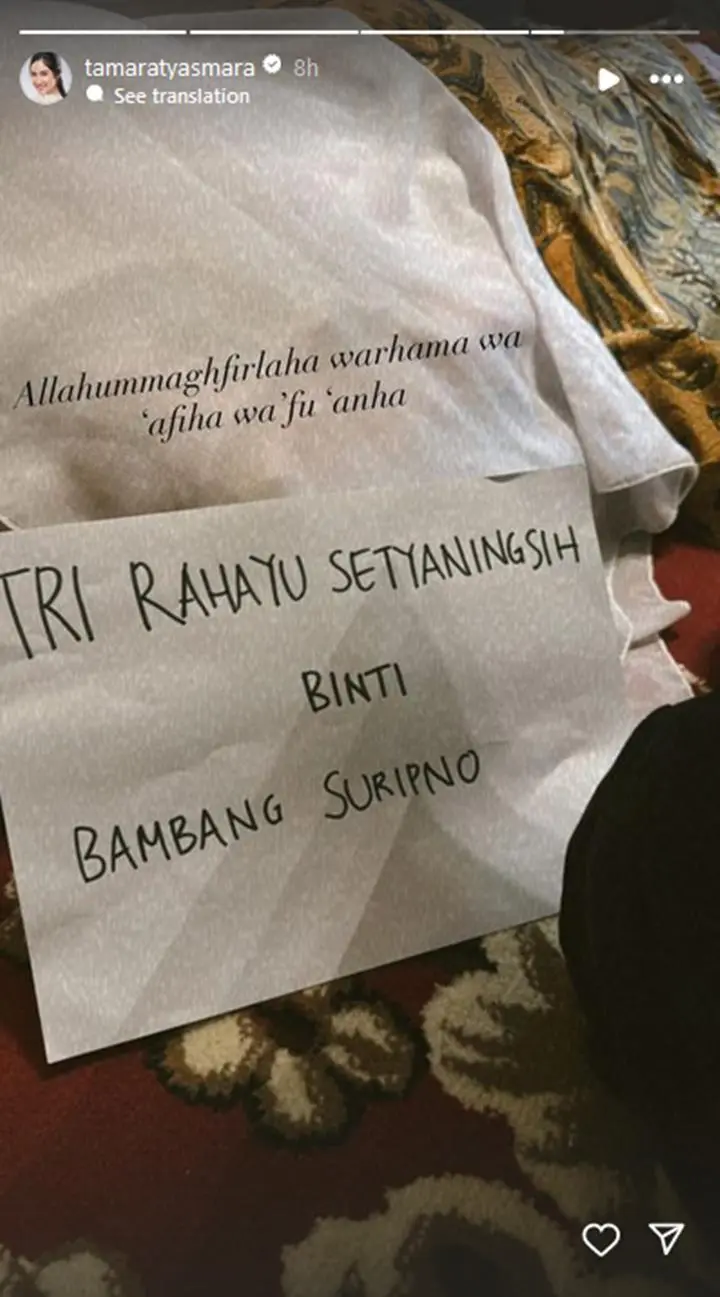 tamaratyasmara 8h
See translation
Allahummaghfirlaha warhama wa
‘afiha wa’fu ‘anha
TRI RAHAYU SETYANINGSIH
BINTI
BAMBANG SURIPNO